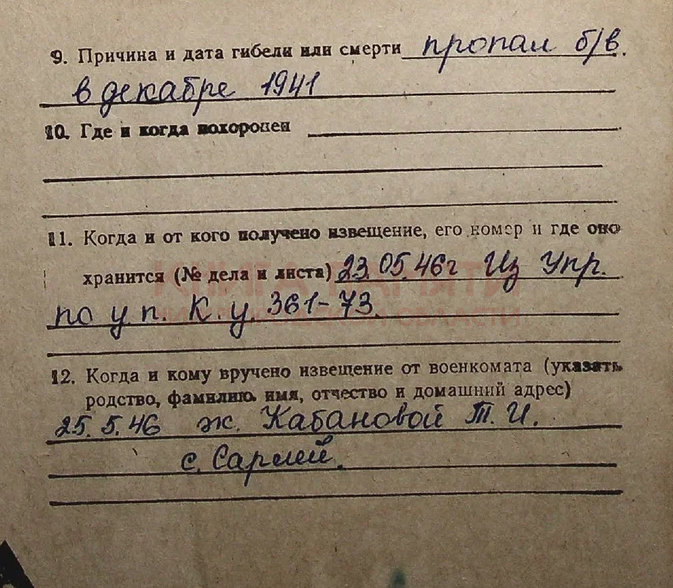 9. Причина и дата гибели или смерти пропал б/в.
в декабре 1941
10. Где и когда похоронен
11. Когда и от кого получено извещение, его номер и где оно
хранится (№ дела и листа) 23.05.46г Из Упр.
по у.п. К.у. 361-73
КНИГА ПАМЯТИ
ОБЛАСТИ
12. Когда и кому вручено извещение от военкомата (указать
родство, фамилию, имя, отчество и домашний адрес)
25.5.46 ж. Кабановой Т.И.
с. Сарлей.